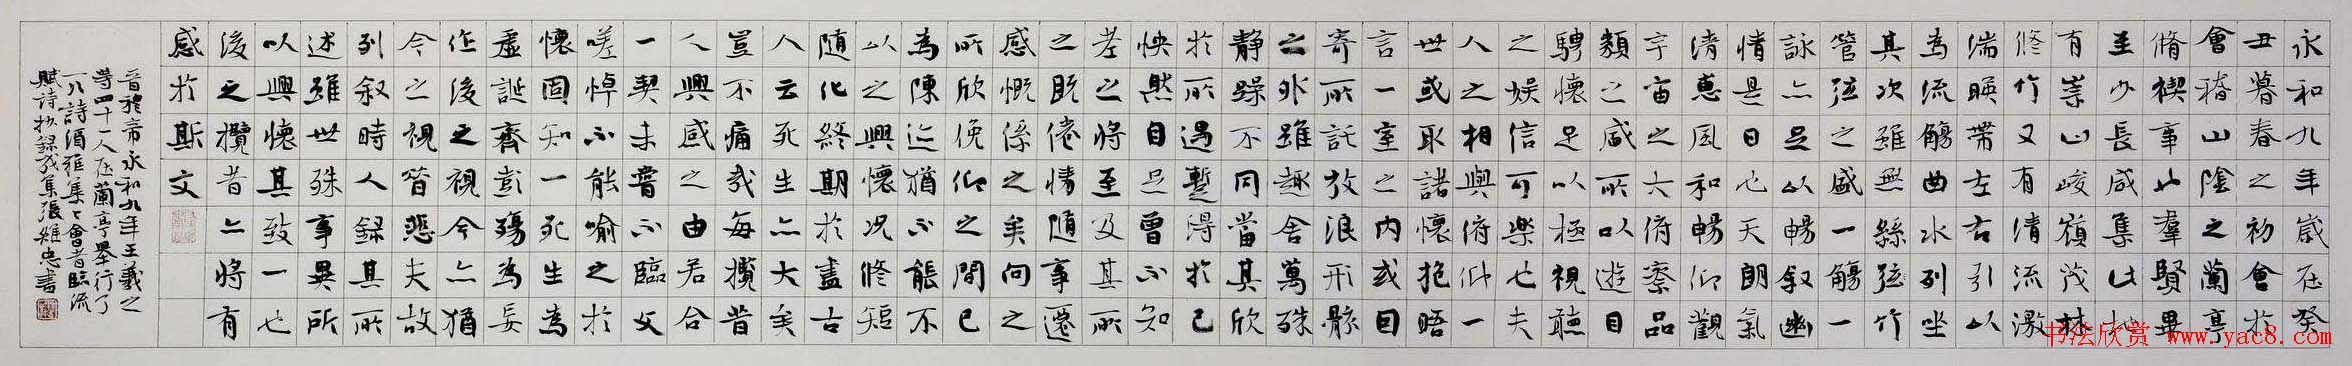 永和九年歲在癸
丑暮春之初會於
會稽山陰之蘭亭
脩禊事也羣賢畢
至少長咸集此地
有崇山峻嶺茂林
修竹又有清流激
湍暎帶左右引以
為流觴曲水列坐
其次雖無絲弦竹
管弦之盛一觴一
詠亦足以暢叙幽
情是日也天朗氣
清惠風和暢仰觀
宇宙之大俯察品
類之盛所以遊目
騁懷足以極視聽
之娱信可樂也夫
人之相與俯仰一
世或取諸懷抱晤
言一室之内或因
寄所託放浪形骸
之外雖趣舍萬殊
静躁不同當其欣
於所遇蹔得於己
怏然自足曾不知
老之將至及其所
之既倦情隨事遷
感慨係之矣向之
所欣俛仰之間已
為陳迹猶不能不
以之興懷况修短
隨化終期於盡古
人云死生亦大矣
豈不痛哉每攬昔
人興感之由若合
一契未嘗不臨文
嗟悼不能喻之於
懷固知一死生為
虛誕齊彭殤為妄
作後之視今亦猶
今之視昔悲夫故
列叙時人録其所
述雖世殊事異所
以興懷其致一也
後之攬者亦將有
感於斯文
晉穆帝永和九年王羲之
等四十一人在蘭亭舉行了
一次詩酒雅集々會者臨流
賦詩抄録成集張維忠書
书法欣赏 www.yac8.com